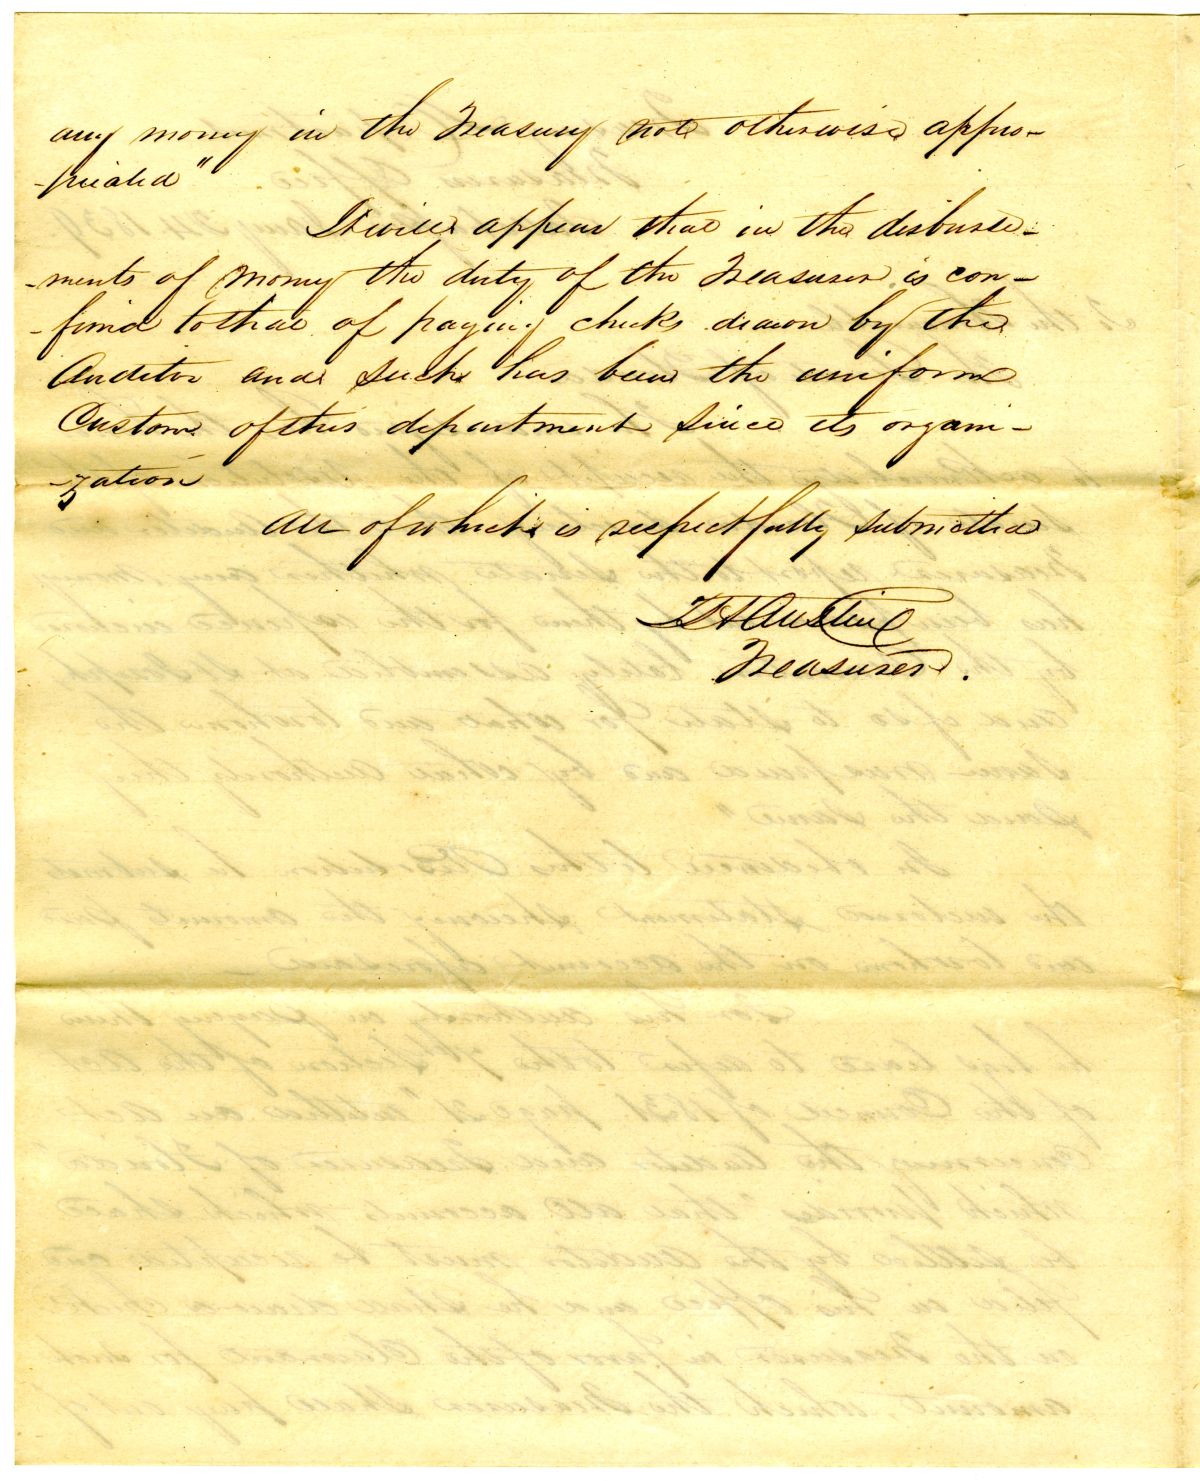 any money in the Treasury not otherwise appro-
-priated"
It will appear that in the disburse-
-ments of money the duty of the Treasurer is con-
-fined to that of paying checks drawn by the
Auditor and such has been the uniform
Custom of this department since its organi-
-zation
All of which is respectfully submitted
Austin
Treasurer.